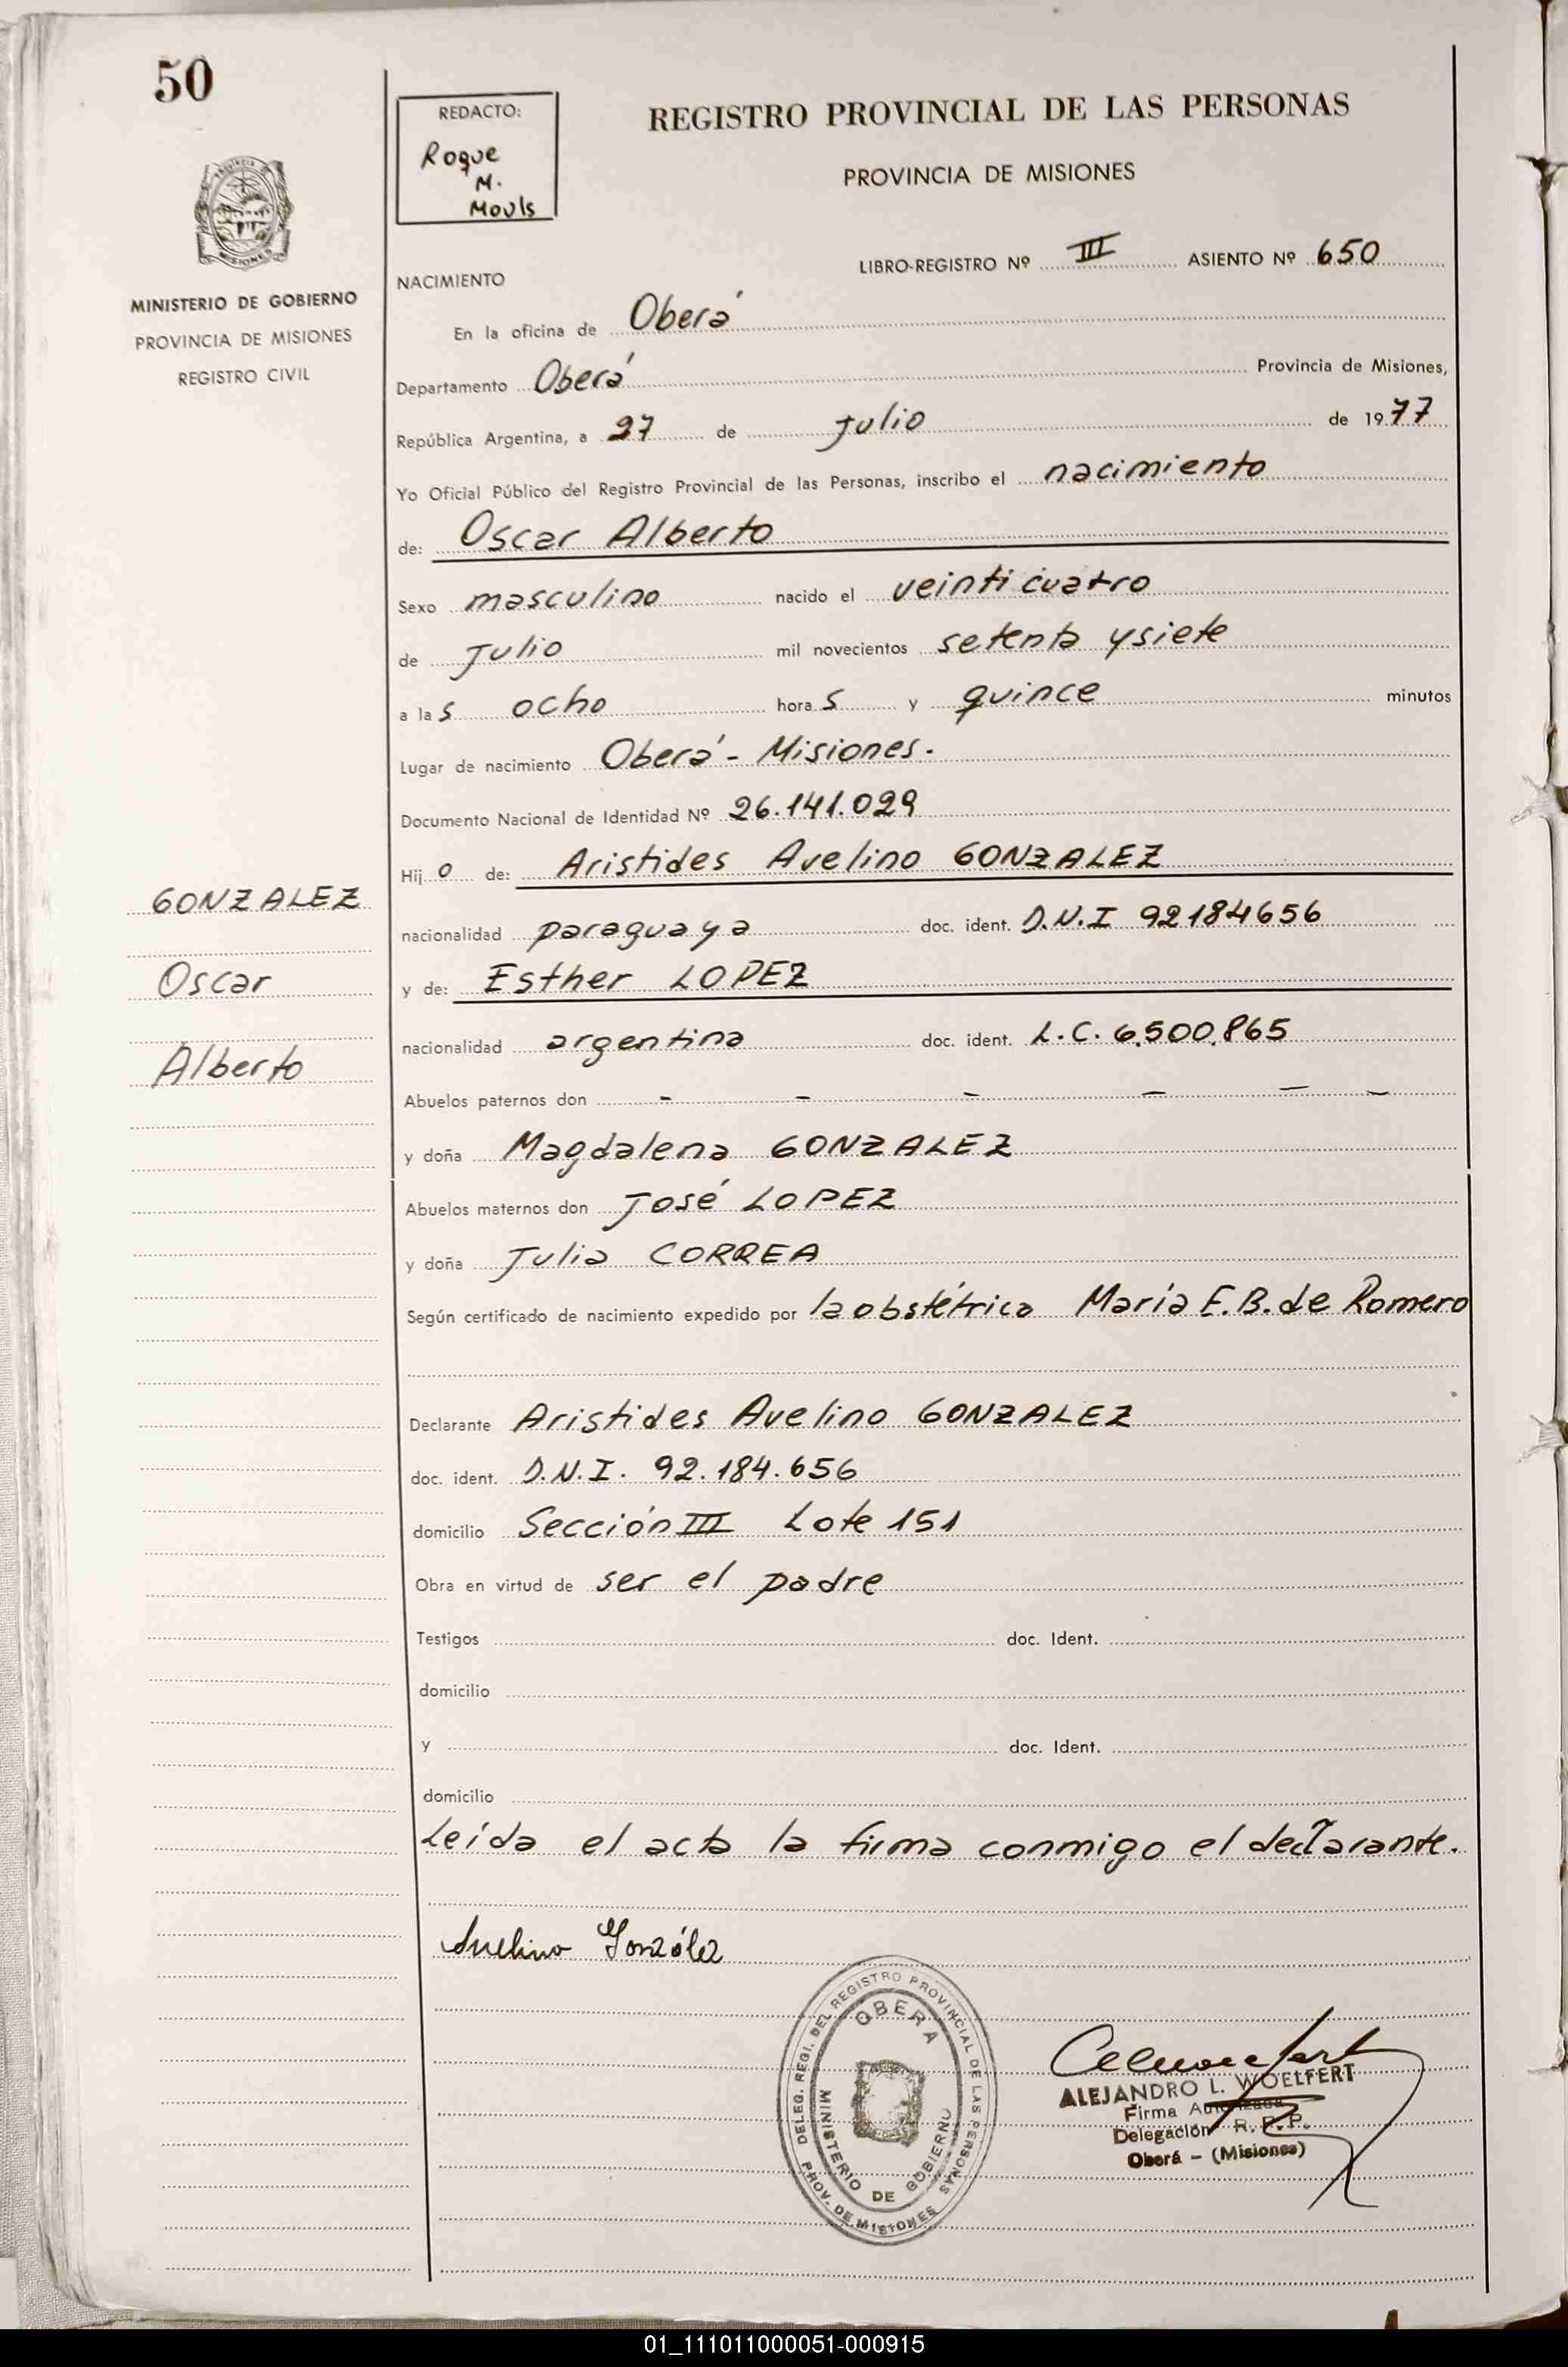 50
REDACTO:
Roque
M.
Mouls
REGISTRO PROVINCIAL DE LAS PERSONAS
PROVINCIA DE MISIONES
MINISTERIO DE GOBIERNO
PROVINCIA DE MISIONES
REGISTRO CIVIL
LIBRO-REGISTRO Nº III ASIENTO Nº 650
NACIMIENTO
En la oficina de Oberá
Departamento Oberá Provincia de Misiones,
República Argentina, a 27 de Julio de 1977
Yo Oficial Público del Registro Provincial de las Personas, inscribo el nacimiento
de: Oscar Alberto
Sexo masculino nacido el veinticuatro
de Julio mil novecientos setenta y siete
a las ocho horas y quince minutos
Lugar de nacimiento Oberá - Misiones.
Documento Nacional de Identidad Nº 26.141.029
Hijo de: Aristides Avelino GONZALEZ
GONZALEZ
nacionalidad paraguaya doc. ident. D.N.I 92184656
Oscar
y de: Esther LOPEZ
nacionalidad argentina doc. ident. L.C. 6.500.865
Alberto
Abuelos paternos don - - - - - -
y doña Magdalena GONZALEZ
Abuelos maternos don José LOPEZ
y doña Julia CORREA
Según certificado de nacimiento expedido por la obstétrica María E.B. de Romero
Declarante Aristides Avelino GONZALEZ
doc. ident. D.N.I. 92.184.656
domicilio Sección III Lote 151
Obra en virtud de ser el padre
Testigos doc. Ident.
domicilio
y doc. Ident.
domicilio
Leída el acta la firma conmigo el declarante.
Avelino González
DELEG. REGI. DEL REGISTRO PROVINCIAL DE LAS PERSONAS
OBERA
MINISTERIO DE GOBIERNO
PROV. DE MISIONES
ALEJANDRO L. WOELFERT
Firma Autorizada
Delegación R. P. P.
Oberá - (Misiones)
01_111011000051-000915